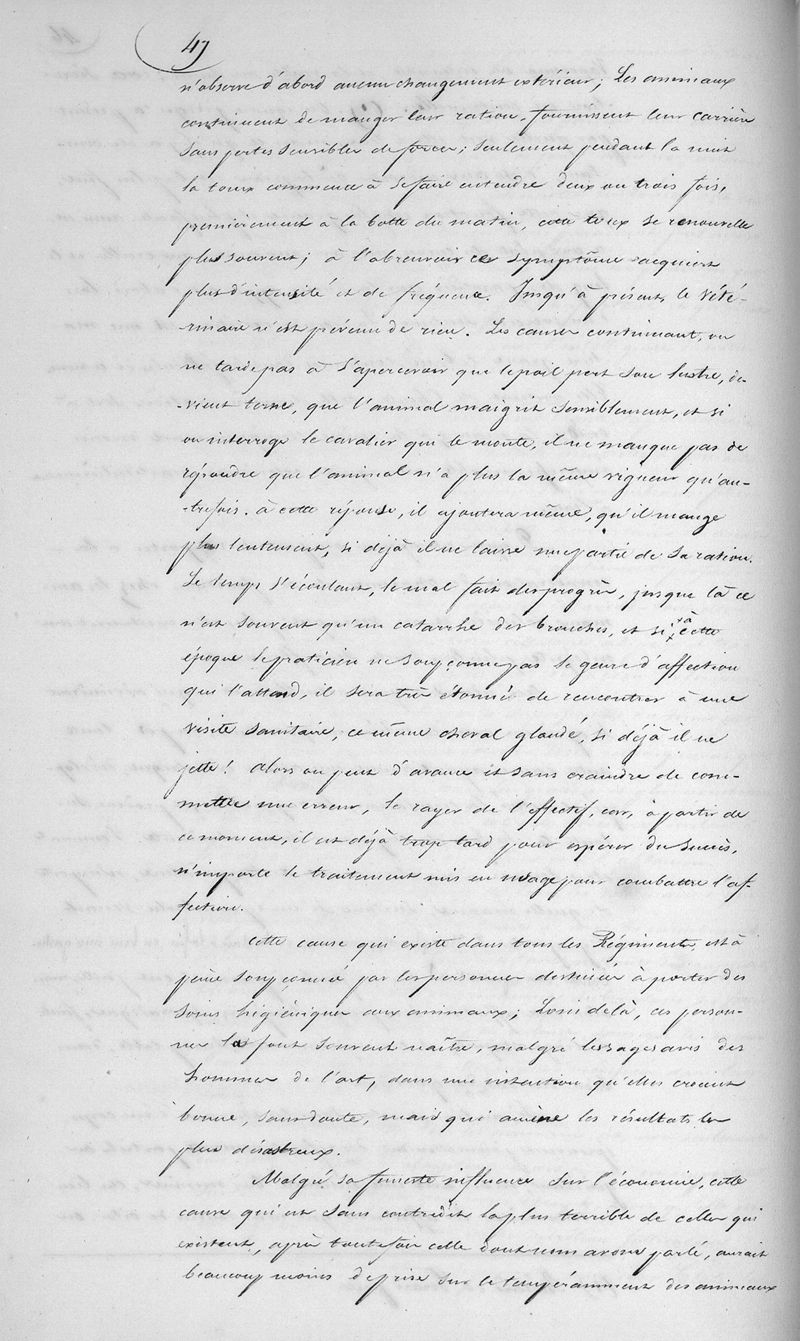 47
n'observe d'abord aucun changement extérieur; Les animaux
continuent de manger leur ration, fournissent leur carrière
sans pertes sensibles de forces; seulement pendant la nuit
la toux commence à se faire entendre deux ou trois fois,
premièrement à la botte du matin, cette toux se renouvelle
plus souvent; à l'abreuvoir ce symptôme acquiert
plus d'intensité et de fréquence. Jusqu'à présent, le vété-
-rinaire n'est prévenu de rien. Les causes continuant, on
ne tarde pas à s'apercevoir que le poil perd son lustre, de-
-vient terne, que l'animal maigrit sensiblement, et si
on interroge le cavalier qui le monte, il ne manque pas de
répondre que l'animal n'a plus la même vigueur qu'au-
-trefois. à cette réponse, il ajoutera même, qu'il mange
plus lentement, si déjà il ne laisse une partie de sa ration.
Le temps s'écoulant, le mal fait des progrès, jusque là ce
n'est souvent qu'un catarrhe des bronches, et si à cette
époque le praticien ne soupçonne pas le genre d'affection
qui l'attend, il sera très étonné de rencontrer à une
visite sanitaire, ce même cheval glandé, si déjà il ne
jette! Alors on peut d'avance et sans craindre de com-
mettre une erreur, le rayer de l'effectif, car, à partir de
ce moment, il est déjà trop tard pour espérer du succès,
n'importe le traitement mis en usage pour combattre l'af-
fection.
Cette cause qui existe dans tous les Régiments, est à
peine soupçonnée par les personnes destinées à porter des
soins higiéniques aux animaux; Loin de là, ces person-
nes la font souvent naître, malgré les sages avis des
hommes de l'art, dans une intention qu'elles croient
bonne, sans doute, mais qui amène les résultats les
plus désastreux.
Malgré sa funeste influence sur l'économie, cette
cause qui est sans contredit la plus terrible de celles qui
existent, après toutefois celle dont nous avons parlé, aurait
beaucoup moins de prise sur le tempéramment des animaux